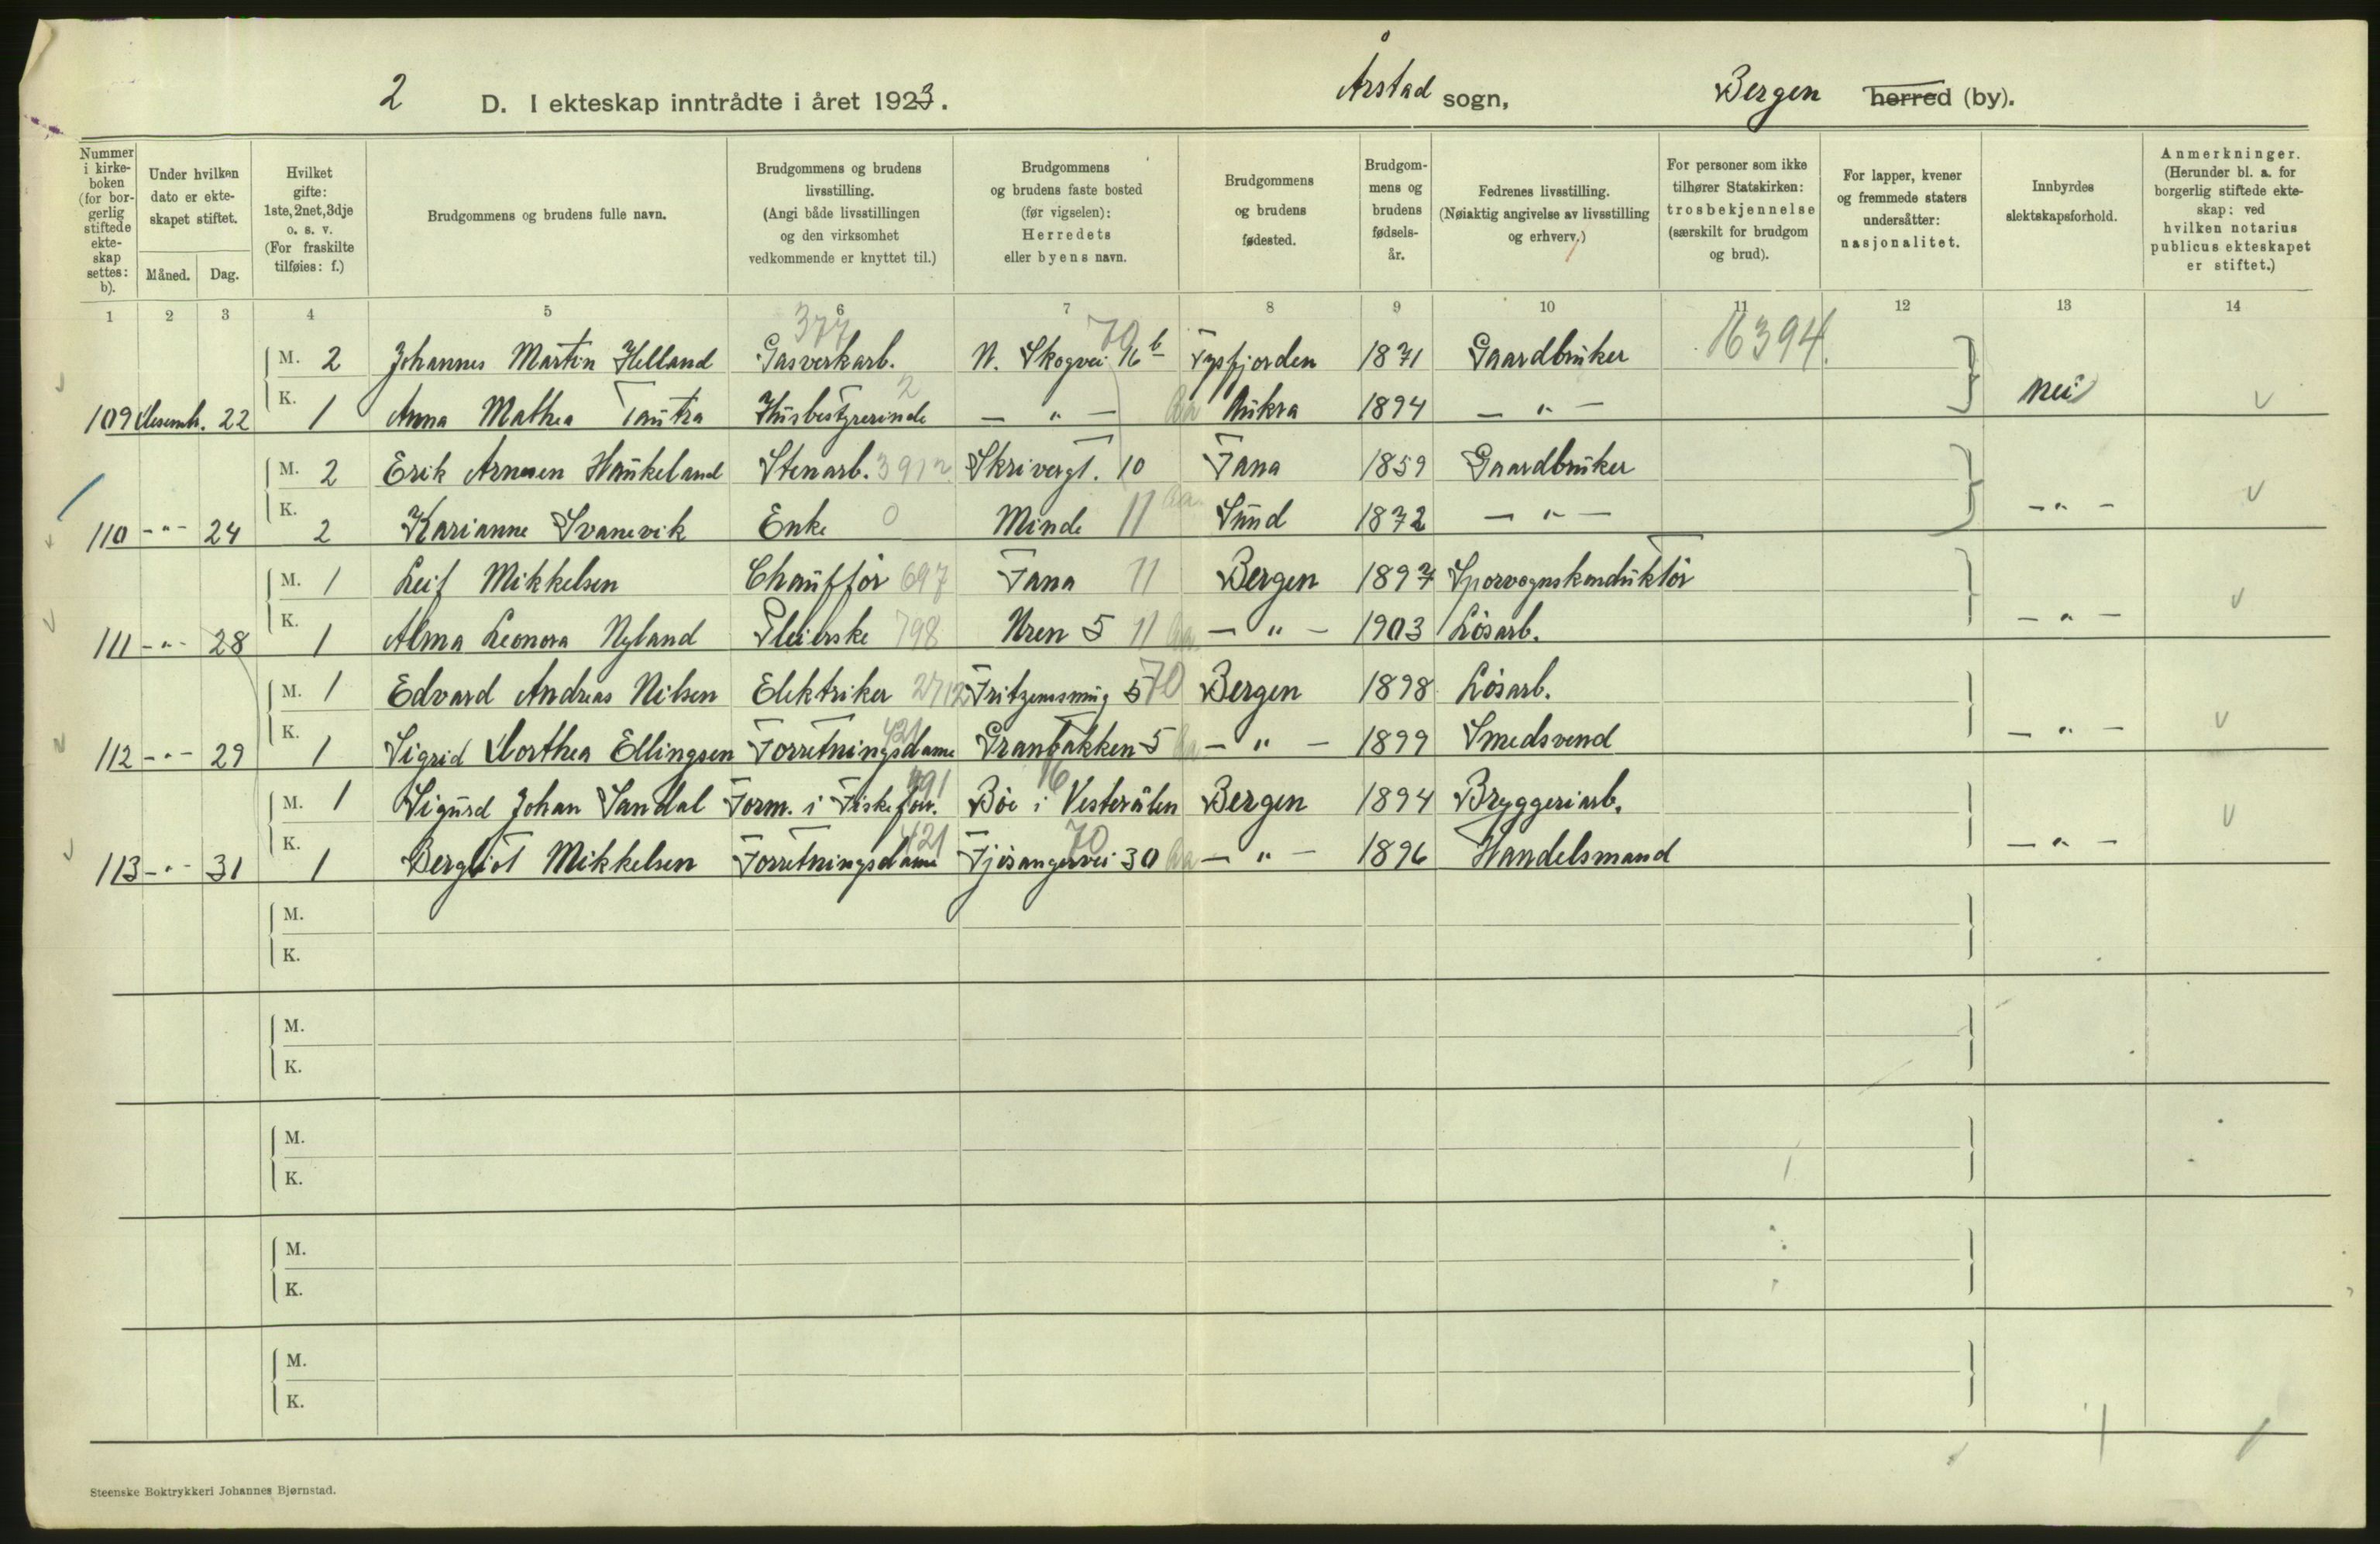 2 D. I ekteskap inntrådte i året 1923. Årstad sogn, Bergen herred (by).
Nummer i kirke-boken (for bor-gerlig stiftede ekte-skap settes: b).
Under hvilken dato er ekte-skapet stiftet.
Måned. Dag.
Hvilket gifte: 1ste, 2net, 3dje o. s. v. (For fraskilte tilføies: f.)
Brudgommens og brudens fulle navn.
Brudgommens og brudens livsstilling. (Angi både livsstillingen og den virksomhet vedkommende er knyttet til.)
Brudgommens og brudens faste bosted (før vigselen): Herredets eller byens navn.
Brudgommens og brudens fødested.
Brudgom-mens og brudens fødsels-år.
Fedrenes livsstilling. (Nøiaktig angivelse av livsstilling og erhverv.)
For personer som ikke tilhører Statskirken: trosbekjennelse (særskilt for brudgom og brud).
For lapper, kvener og fremmede staters undersåtter: nasjonalitet.
Innbyrdes slektskapsforhold.
Anmerkninger. (Herunder bl. a. for borgerlig stiftede ekte-skap: ved hvilken notarius publicus ekteskapet er stiftet.)
1 2 3 4 5 6 7 8 9 10 11 12 13 14
377 70 16394
M. 2 Johannes Martin Helland Gasverkarb. N. Skogvei 16b Tysfjorden 1871 Gaardbruker
109 Desemb. 22 K. 1 Anna Mathea Tautra Husbestyrerinde 2 — " — Aa Aukra 1894 — " — nei v
M. 2 Erik Arnesen Haukeland Stenarb. 3912 Skrivergt. 10 Fana 1859 Gaardbruker
110 -"- 24 K. 2 Karianne Svanevik Enke 0 Minde 11 Aa Sund 1872 — " — — " — v
M. 1 Leif Mikkelsen Chauffør 697 Fana 11 Bergen 1897 Sporvognskonduktør
111 -"- 28 K. 1 Alma Leonora Nyland Pleierske 798 Uren 5 11 Aa — " — 1903 Løsarb. — " — v
M. 1 Edvard Andreas Nilsen Elektriker 2712 Fritzensmug 5 70 Bergen 1898 Løsarb.
112 -"- 29 K. 1 Sigrid Dorthea Ellingsen Forretningsdame 421 Granbakken 5 Aa — " — 1899 Smedsvend — " — v
M. 1 Sigurd Johan Sandal Form. i Fiskeforr. 491 Bøe i Vesterålen 16 Bergen 1894 Bryggeriarb.
113 -"- 31 K. 1 Bergliot Mikkelsen Forretningsdame 421 Fjøsangervei 30 70 Aa — " — 1896 Handelsmand — " — v
M.
K.
M.
K.
M.
K.
M.
K.
M.
K.
Steenske Boktrykkeri Johannes Bjørnstad.